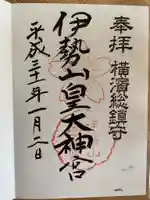 奉拝 横濱総鎮守
伊勢山皇大神宮
平成三十一年一月二日